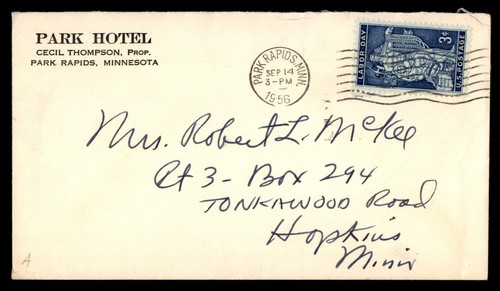 PARK HOTEL
CECIL THOMPSON, PROP.
PARK RAPIDS, MINNESOTA
PARK RAPIDS, MINN.
SEP 14
3-PM
1956
LABOR DAY
3¢
U.S. POSTAGE
Mrs. Robert L. McKee
Rt 3 - Box 294
TONKAWOOD Road
Hopkins
Minn
A